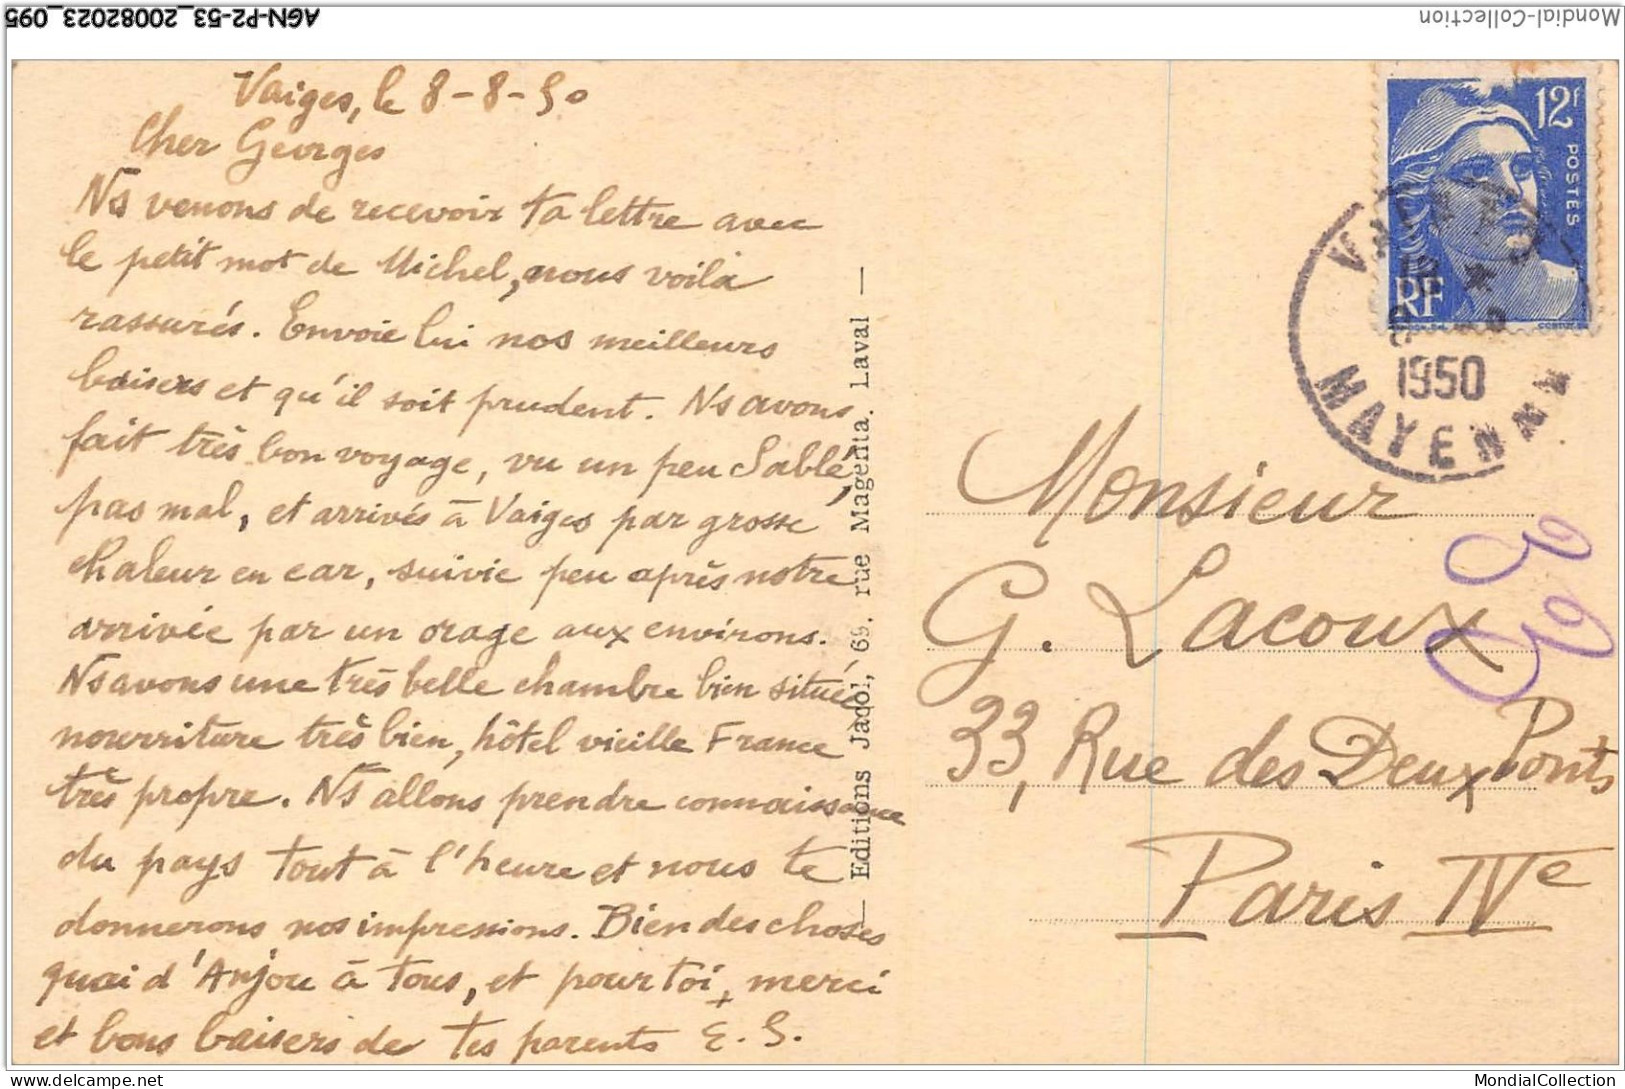 AGN-P2-53_20082023_095
Mondial-Collection
Vaiges, le 8-8-50
Cher Georges
Ns venons de recevoir ta lettre avec
le petit mot de Michel, nous voilà
rassurés. Envoie lui nos meilleurs
baisers et qu'il soit prudent. Ns avons
fait très bon voyage, vu un peu Sablé,
pas mal, et arrivés à Vaiges par grosse
chaleur en car, suivie peu après notre
arrivée par un orage aux environs.
Ns avons une très belle chambre bien située
nourriture très bien, hôtel vieille France
très propre. Ns allons prendre connaissance
du pays tout à l'heure et nous te
donnerons nos impressions. Bien des choses
quai d'Anjou à tous, et pour toi, merci
et bons baisers de tes parents E. S.
— Editions Jacol, 69, rue Magenta. Laval —
12f
POSTES
RF
1950
MAYENNE
Monsieur
G. Lacoux
33, Rue des Deux Ponts
Paris IVe
MondialCollection